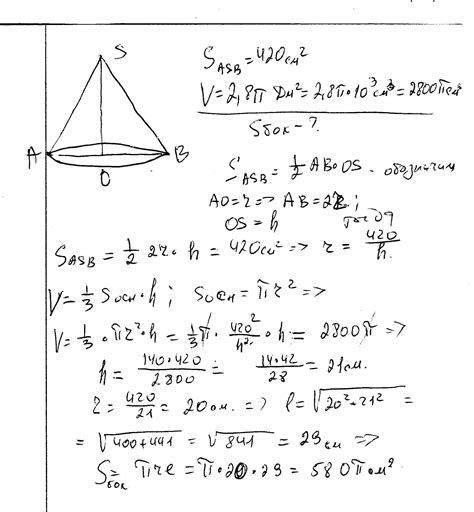 S
A
B
O
S_ASB = 420 см²
V = 2,8π дм² = 2,8π·10³ см³ = 2800π см³
Sбок - ?
S_ASB = 1/2 AB·OS. обозначим
AO = r => AB = 2r;
OS = h тогда
S_ASB = 1/2 2r·h = 420см² => r = 420/h.
V = 1/3 Sосн·h; Sосн = πr² =>
V = 1/3·πr²·h = 1/3π·420²/h²·h = 2800π =>
h = 140·420/2800 = 14·42/28 = 21см.
r = 420/21 = 20см. => l = √20²+21² =
= √400+441 = √841 = 29см =>
Sбок = πrl = π·20·29 = 580π см²